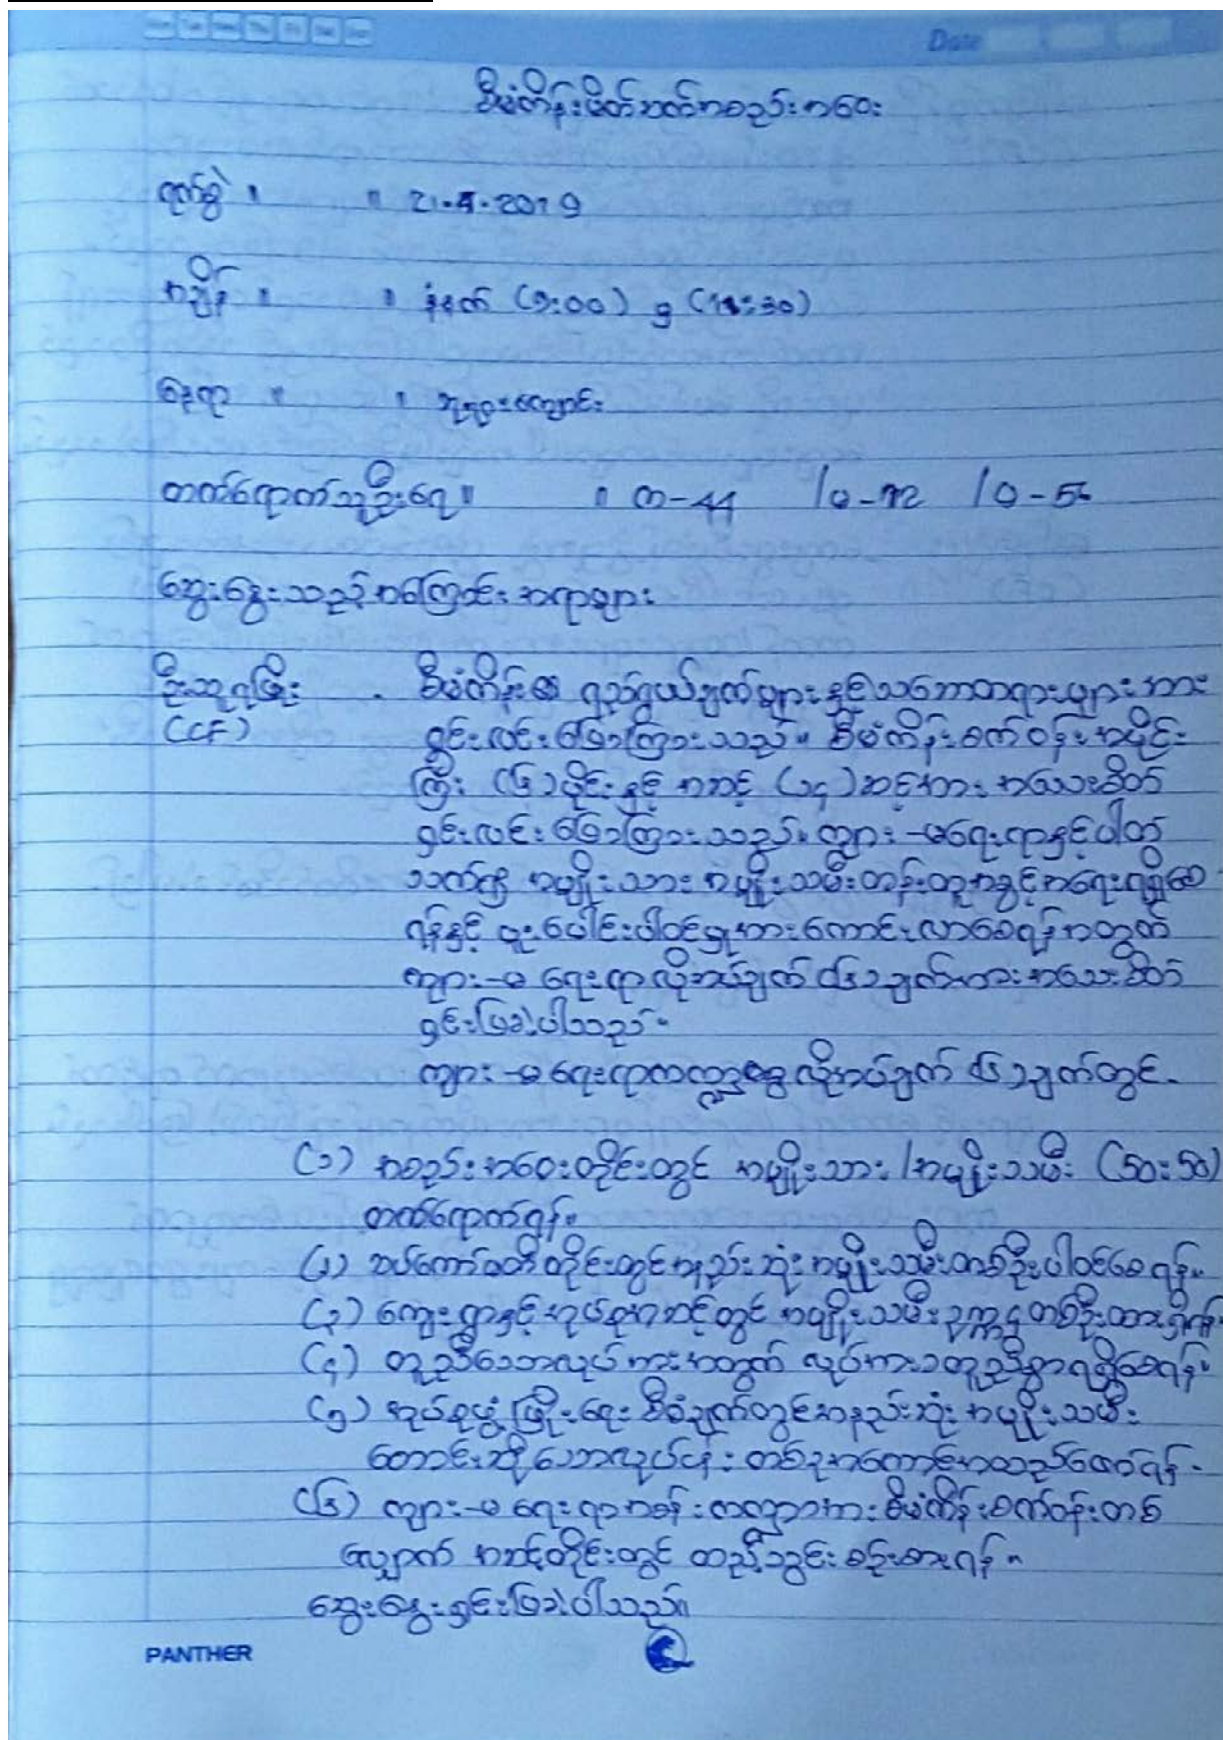 Date
စီမံကိန်းမိတ်ဆက်အစည်းအဝေး
ရက်စွဲ ။ ။ 21.4.2019
အချိန် ။ ။ နံနက် (9:00) မှ (11:30)
နေရာ ။ ။ ဘုရားကျောင်း
တက်ရောက်သူဦးရေ ။ ။ က - 44 / မ - 72 / ပ - 5
ဆွေးနွေးသည့်အကြောင်းအရာများ
ဦးသူရဖြိုး . စီမံကိန်း၏ ရည်ရွယ်ချက်များနှင့်သဘောတရားများအား
(CF) ရှင်းလင်းပြောကြားသည်။ စီမံကိန်းစက်ဝန်းအပိုင်း
ကြီး (၆)ပိုင်းနှင့် အဆင့် (၁၄)ဆင့်အား အသေးစိတ်
ရှင်းလင်းပြောကြားသည်။ ကျား-မရေးရာနှင့်ပါတ်
သက်၍ အမျိုးသားအမျိုးသမီးတန်းတူအခွင့်အရေးရရှိစေ
ရန်နှင့် ပူးပေါင်းပါဝင်မှုအားကောင်းလာစေရန်အတွက်
ကျား-မ ရေးရာလိုအပ်ချက် (၆)ချက်အား အသေးစိတ်
ရှင်းပြခဲ့ပါသည်။
ကျား-မ ရေးရာကဏ္ဍ လိုအပ်ချက် (၆)ချက်တွင်
(၁) အစည်းအဝေးတိုင်းတွင် အမျိုးသား/အမျိုးသမီး (50:50)
တက်ရောက်ရန်။
(၂) ဆပ်ကော်မတီတိုင်းတွင်အနည်းဆုံးအမျိုးသမီးတစ်ဦးပါဝင်စေရန်။
(၃) ကျေးရွာနှင့်အုပ်စုအဆင့်တွင် အမျိုးသမီးဥက္ကဌတစ်ဦးထားရှိရန်
(၄) တူညီသောလုပ်အားအတွက် လုပ်အားခတူညီစွာရရှိစေရန်။
(၅) အုပ်စုဖွံ့ဖြိုးရေး စီမံချက်တွင်အနည်းဆုံး အမျိုးသမီး
တောင်းဆိုသောလုပ်ငန်းတစ်ခုအကောင်အထည်ဖော်ရန်။
(၆) ကျား-မ ရေးရာအခန်းကဏ္ဍအား စီမံကိန်းစက်ဝန်းတစ်
လျှောက် အဆင့်တိုင်းတွင် ထည့်သွင်းစဉ်းစားရန်။
ဆွေးနွေးရှင်းပြခဲ့ပါသည်။
PANTHER